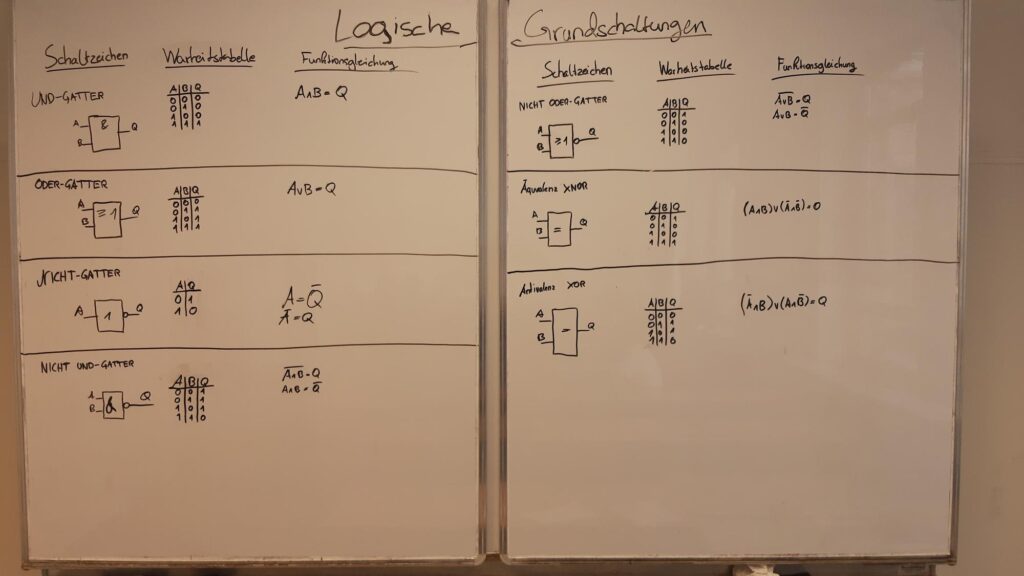 Logische Grundschaltungen
Schaltzeichen Warheitstabelle Funktionsgleichung
UND-GATTER
A B Q
0 0 0
0 1 0
1 0 0
1 1 1
A∧B = Q
A
B
&
Q
ODER-GATTER
A B Q
0 0 0
0 1 1
1 0 1
1 1 1
A∨B = Q
A
B
≥1
Q
NICHT-GATTER
A Q
0 1
1 0
A = Q̅
A̅ = Q
A
1
Q
NICHT UND-GATTER
A B Q
0 0 1
0 1 1
1 0 1
1 1 0
A̅∧̅B̅ = Q
A∧B = Q̅
A
B
&
Q
Schaltzeichen Warheitstabelle Funktionsgleichung
NICHT ODER-GATTER
A B Q
0 0 1
0 1 0
1 0 0
1 1 0
A̅∨̅B̅ = Q
A∨B = Q̅
A
B
≥1
Q
Äquivalenz XNOR
A B Q
0 0 1
0 1 0
1 0 0
1 1 1
(A∧B)∨(A̅∧B̅) = Q
A
B
=
Q
Antivalenz XOR
A B Q
0 0 0
0 1 1
1 0 1
1 1 0
(A̅∧B)∨(A∧B̅) = Q
A
B
=
Q